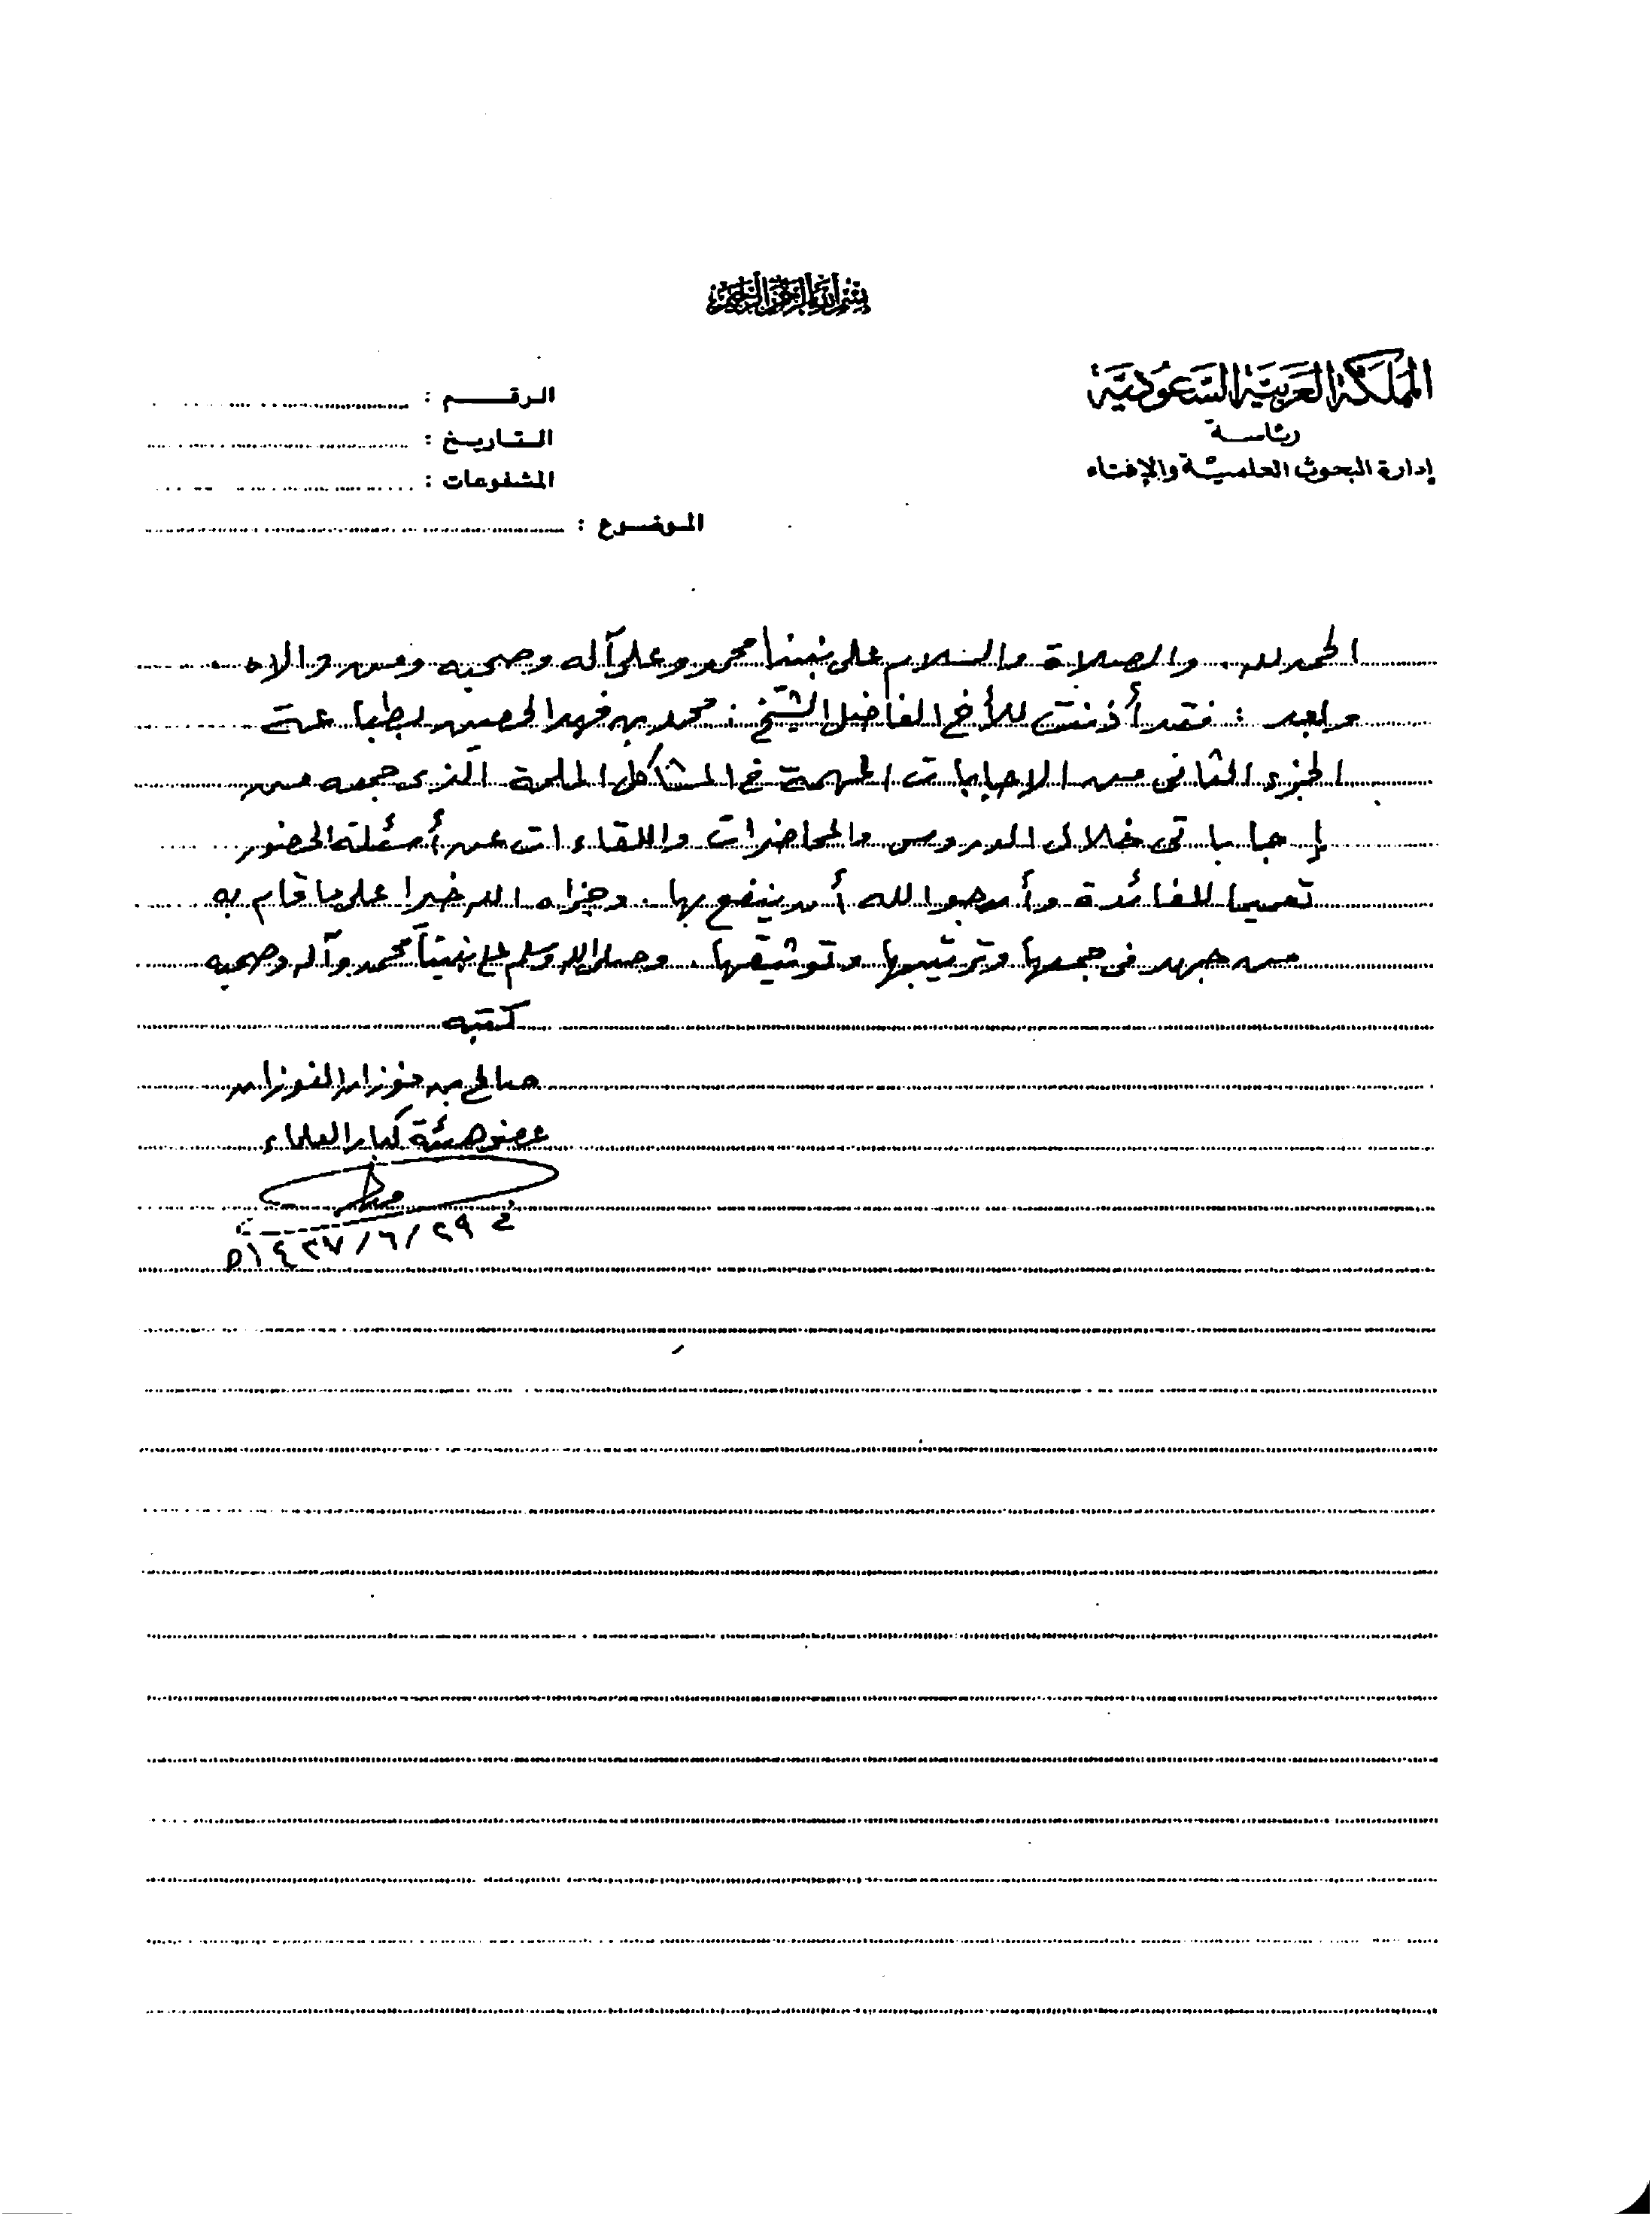 بسم الله الرحمن الرحيم
المملكة العربية السعودية
رئاسة
إدارة البحوث العلمية والإفتاء
الرقم :
التاريخ :
المشفوعات :
الموضوع :
الحمد لله. والصلاة والسلام على نبينا محمد وعلى آله وصحبه ومن والاه.
وبعد : فقد أذنت للأخ الفاضل الشيخ : محمد بن فهد الحصين بطباعة
الجزء الثاني من الإجابات المهمة في المشاكل الملمة الذي جمعه من
إجاباتي خلال الدروس والمحاضرات واللقاءات عن أسئلة الحضور
تعميما للفائدة وأرجوا الله أن ينفع بها. وجزاه الله خيرا على ما قام به
من جهد في جمعها وترتيبها وتوثيقها. وصلى الله وسلم على نبينا محمد وآله وصحبه
كتبه
صالح بن فوزان الفوزان
عضو هيئة كبار العلماء
في ٢٩/٦/١٤٢٧ه